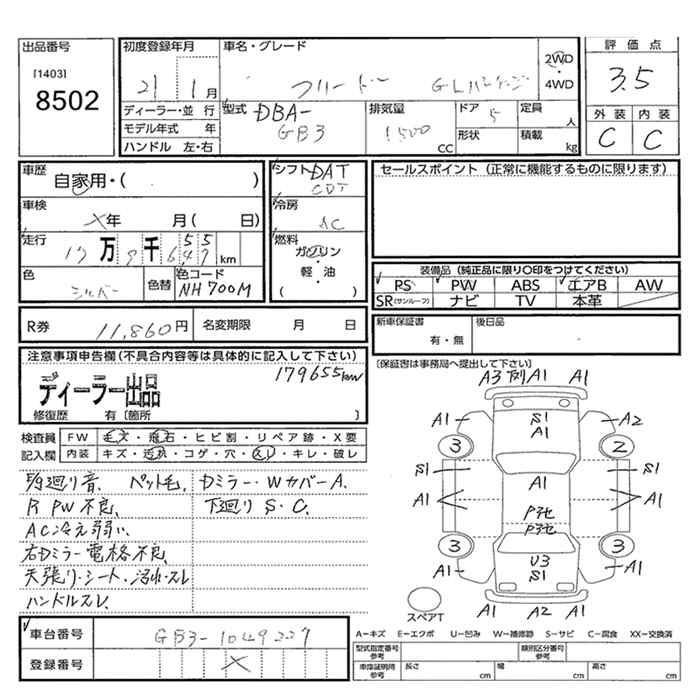 出品番号
[1403]
8502
初度登録年月
21 1月
ディーラー・並行
モデル年式 年
ハンドル 左・右
車名・グレード
フリード Gエアロ
2WD
・
4WD
型式 DBA-
GB3
排気量
1500
CC
ドア 5
形状
定員
人
積載
kg
評価点
3.5
外装 内装
C C
車歴
自家用・( )
車検
×年 月( 日)
走行
17万9千655km
色
シルバー
色替
色コード
NH700M
シフト DAT
CDT
冷房
AC
燃料
ガソリン
・
軽・油
( )
セールスポイント (正常に機能するものに限ります)
装備品 (純正品に限り○印をつけてください)
PS PW ABS エアB AW
SR(サンルーフ) ナビ TV 本革
R券 11,860円 名変期限 月 日
新車保証書
有・無
後日品
[保証書は事務局へ提出して下さい]
注意事項申告欄(不具合内容等は具体的に記入して下さい)
179655km
ディーラー出品
修復歴 有〔箇所 〕
検査員 FW 毛ズ・飛石・ヒビ割・リペア跡・X要
記入欄 内装 キズ・汚れ・コゲ・穴・スレ・キレ・破レ
廻り音 ペット毛、
R PW不良、
AC冷え弱い、
右Dミラー電格不良、
天張り・シート・汚れ・スレ
ハンドルスレ、
Dミラー・WカバーA、
下廻り S・C、
A3 A1 A1
A1 S1 A1 A2
3 2
S1 A1 S1
A1 A1
3 3
U3
A1 S1 A1
スペアT
A1 A2 A1
車台番号 GB3-1049227
登録番号 ×
A-キズ E-エクボ U-凹み W-補修跡 S-サビ C-腐食 XX-交換済
型式指定番号
参考
類別区分番号
参考
車庫証明時
参考
長さ cm 幅 cm 高さ cm